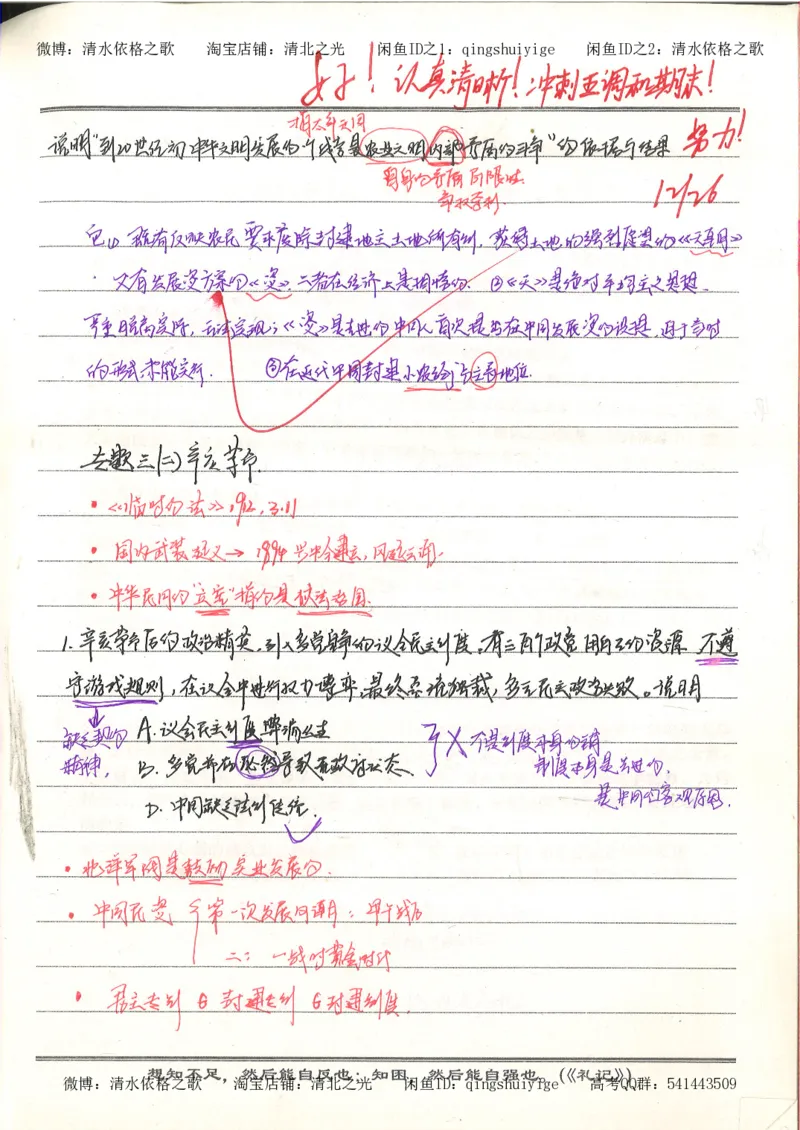 微博：清水依格之歌 淘宝店铺：清北之光 闲鱼ID之1：qingshuiyige 闲鱼ID之2：清水依格之歌
好！认真清晰！冲刺五调和期末！
努力！
12/26
说明"到20世纪初中华文明发展的 农业文明内部矛盾的斗争"的依据与结果
自身的矛盾 局限性
争权夺利
既有反映农民要求废除封建地主土地所有制，获得土地的强烈愿望的《天朝田》
又有发展资方案的《资》，二者在经济上是 ②《天》是绝对平均主义思想，
严重脱离实际，无法实现；《资》是 中国人首次提出在中国发展资的设想，由于当时
的形式未能实行. ③在近代中国封建小农经济占主导地位.
专题三(二)辛亥革命.
·《临时约法》1912.3.11
· 国内武装起义→1894兴中会建立，
· 中华民国的"立宪"指的是依法治国.
1. 辛亥革命后的政治精英，引入多党竞争的议会民主制度，有三百个政党 用自己的资源 不遵
守游戏规则，在议会中进行权力博弈，最终 独裁，多元民主政治失败。说明
缺乏契约精神，
A. 议会民主制度弊病丛生
B. 多党并存必然导致无政府状态.
D. 中国缺乏法制传统.
}× 不是制度本身的错
制度本身是先进的，
是中国的客观原因.
· 北洋军阀是鼓励实业发展的.
· 中国民资 {第一次发展的时期：甲午战后
二：一战时黄金时代
· 君主专制 封建专制 封建制度.
想知不足，然后能自反也；知困，然后能自强也。(《礼记》)
微博：清水依格之歌 淘宝店铺：清北之光 闲鱼ID：qingshuiyige 高考QQ群：541443509